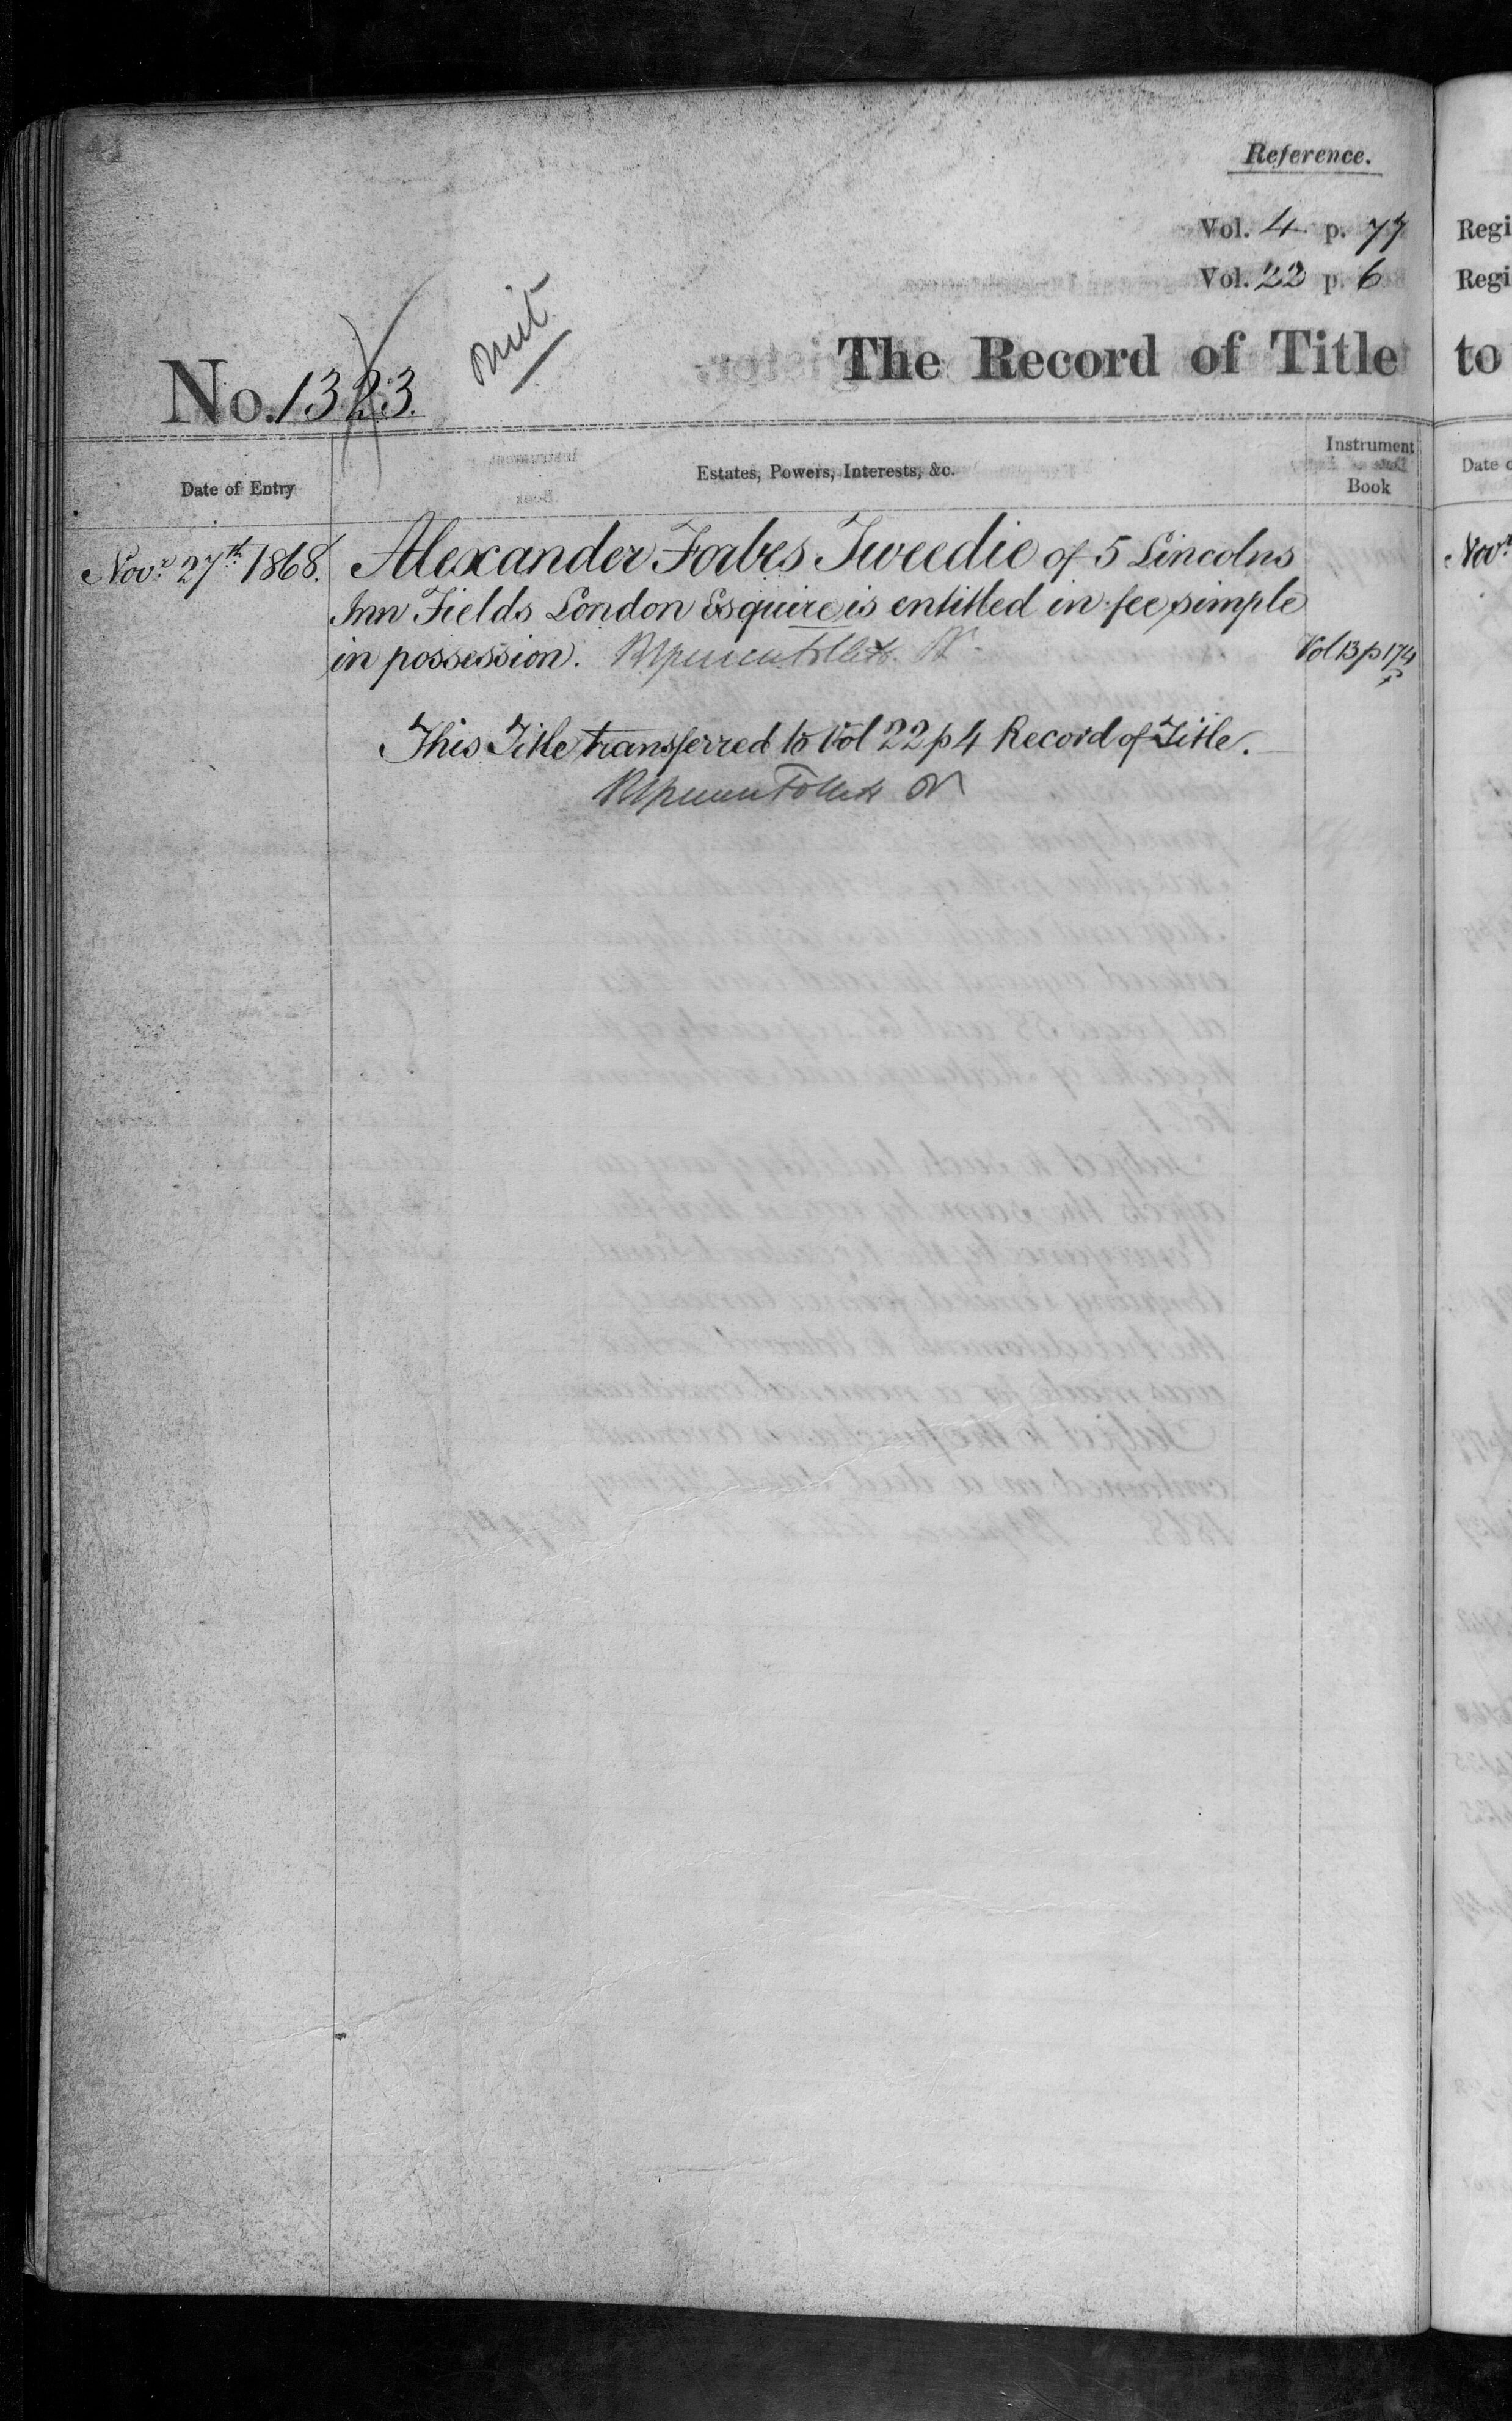 44
Reference.
Vol. 4 p. 77
Vol. 22 p. 6
The Record of Title
No. 1323.
Date of Entry
Estates, Powers, Interests, &c.
Instrument
Book
Nov.r 27th 1868.
Alexander Forbes Tweedie of 5 Lincolns
Inn Fields London Esquire is entitled in fee simple
in possession.
Vol 13 p 174
This Title transferred to Vol 22 p 4 Record of Title.
Regi
Regi
to
Date o
Nov.r